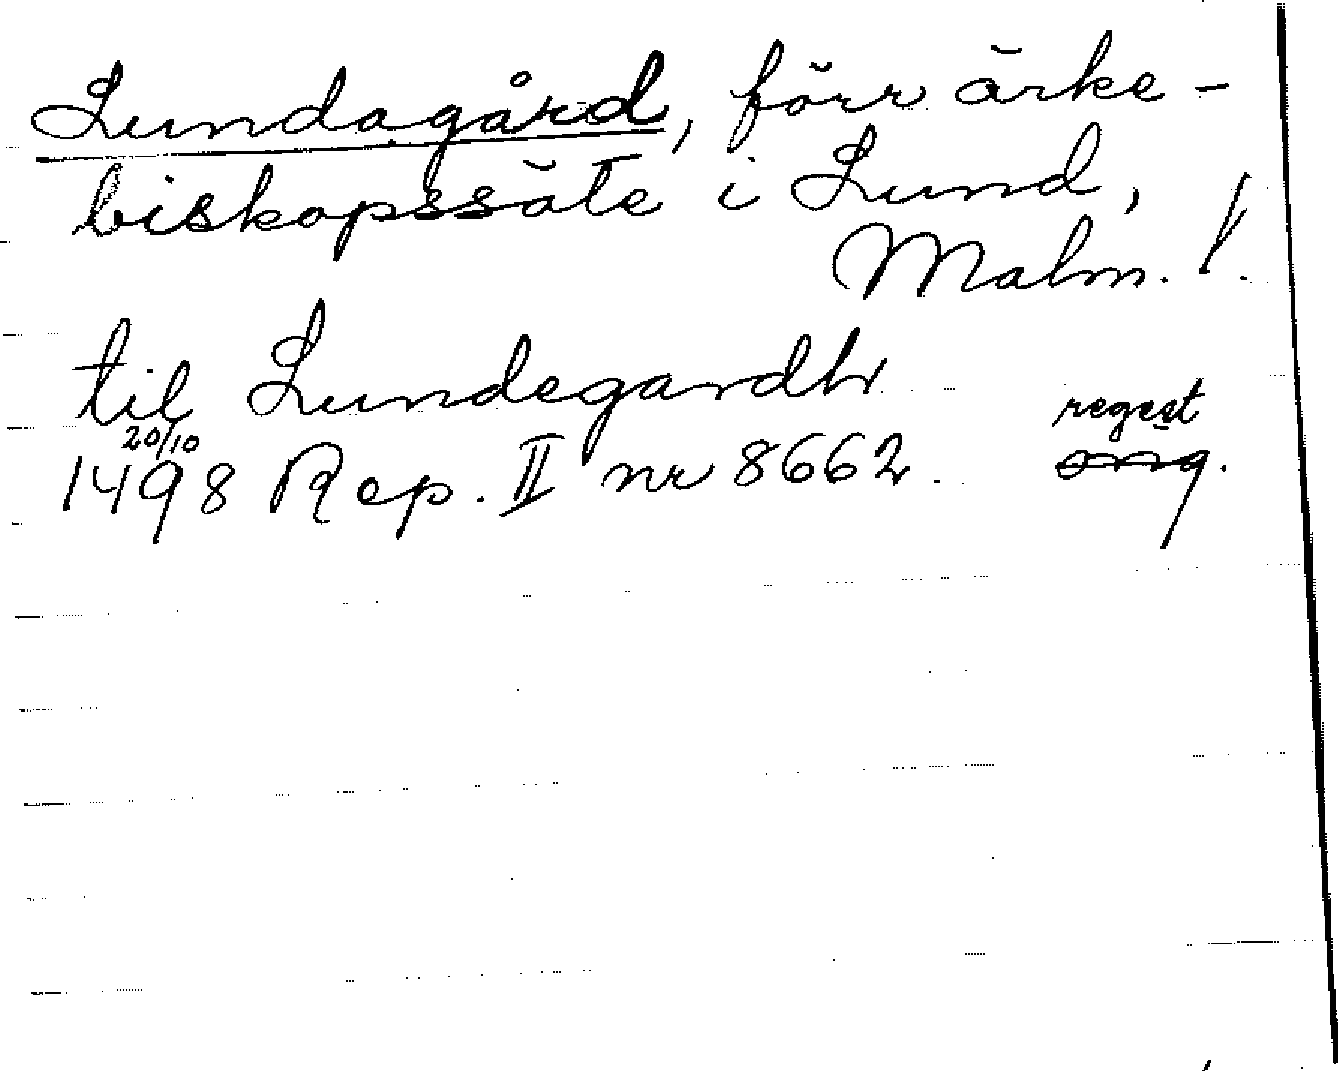 Lundagård, förr ärke-
biskopssäte i Lund,
Malm. l.
til Lundegardh
20/10 regest
1498 Rep. II nr 8662. <s>orig.</s>